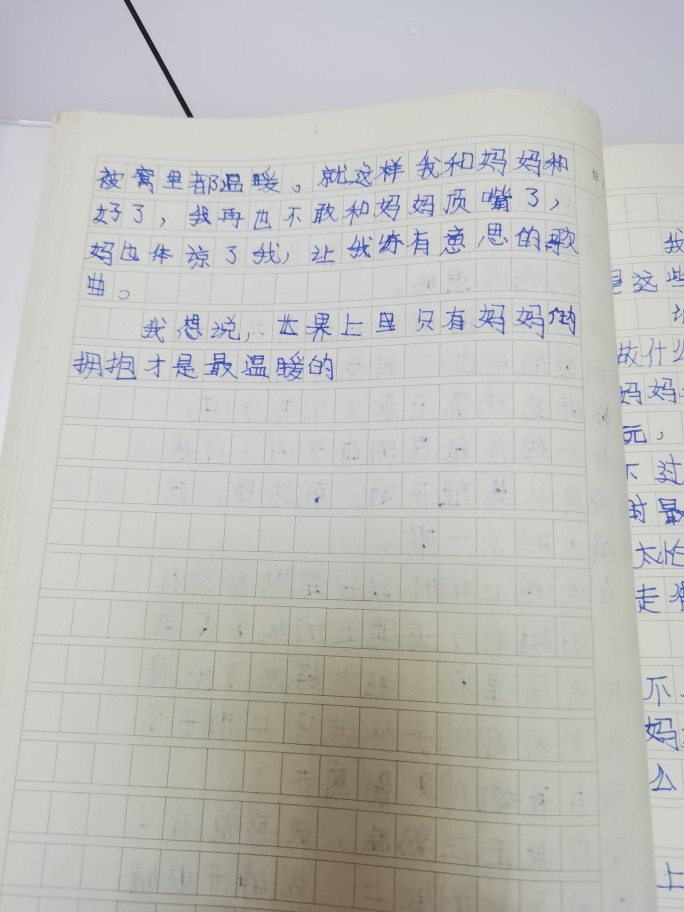 被窝里都温暖。就这样我和妈妈和
好了，我再也不敢和妈妈顶嘴了，
妈也体谅了我，让我练有意思的歌
曲。
我想说，世界上里只有妈妈的
拥抱才是最温暖的
我
是这些
做什么
妈妈
元，
不过
时最
太
走
不
妈
么
上